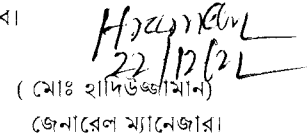 বা
22/12/21
( মোঃ হাদিউজ্জামান)
জেনারেল ম্যানেজার।